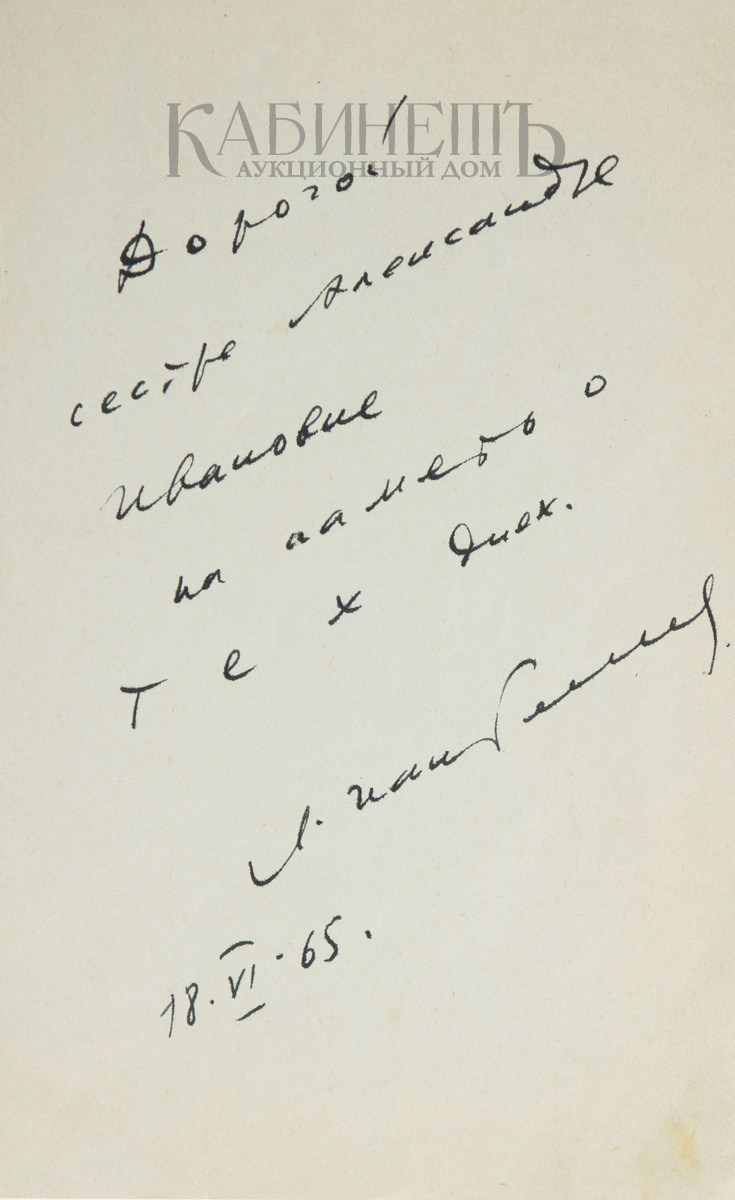 КАБИНЕТЪ
АУКЦИОННЫЙ ДОМ
Дорогой
сестре Александре
Ивановне
на паметь о
тех днех.
Л.
18.VI.65.